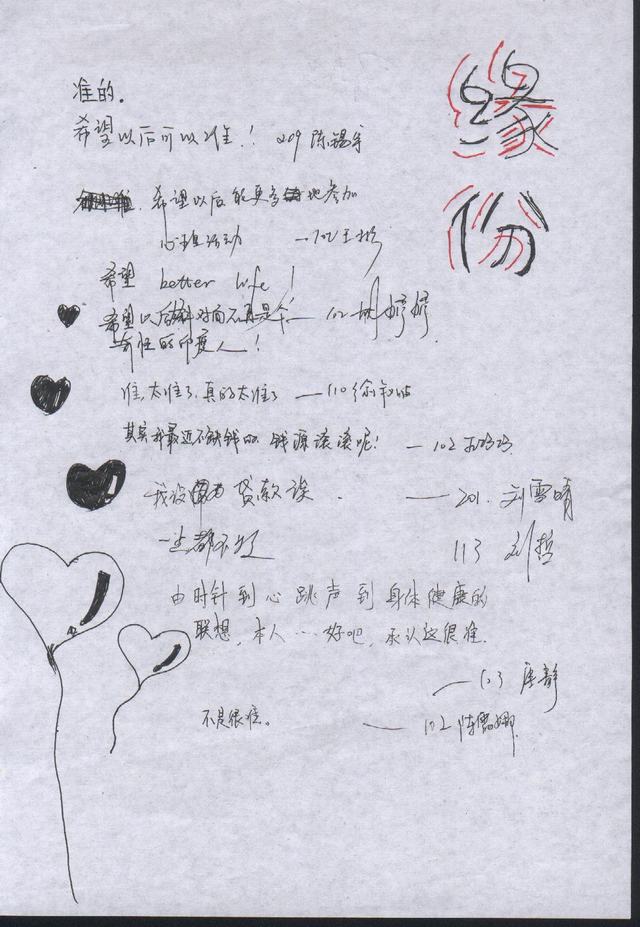 缘
份
准的。
希望以后可以准!209 陈锡
希望以后能更多地参加
心理活动 —102王
希望 better life!
希望以后对面不再是个! —102 胡婷婷
奇怪的印度人!
准,太准了,真的太准了 —110徐
其实我最近不缺钱的,钱源滚滚呢! —102
我没贷款诶. —201. 刘雪晴
一生都不 113 刘哲
由时针到心跳声到身体健康的
联想,本人…好吧,承认这很准.
—123 唐静
不是很准。 —102 陈雪娜